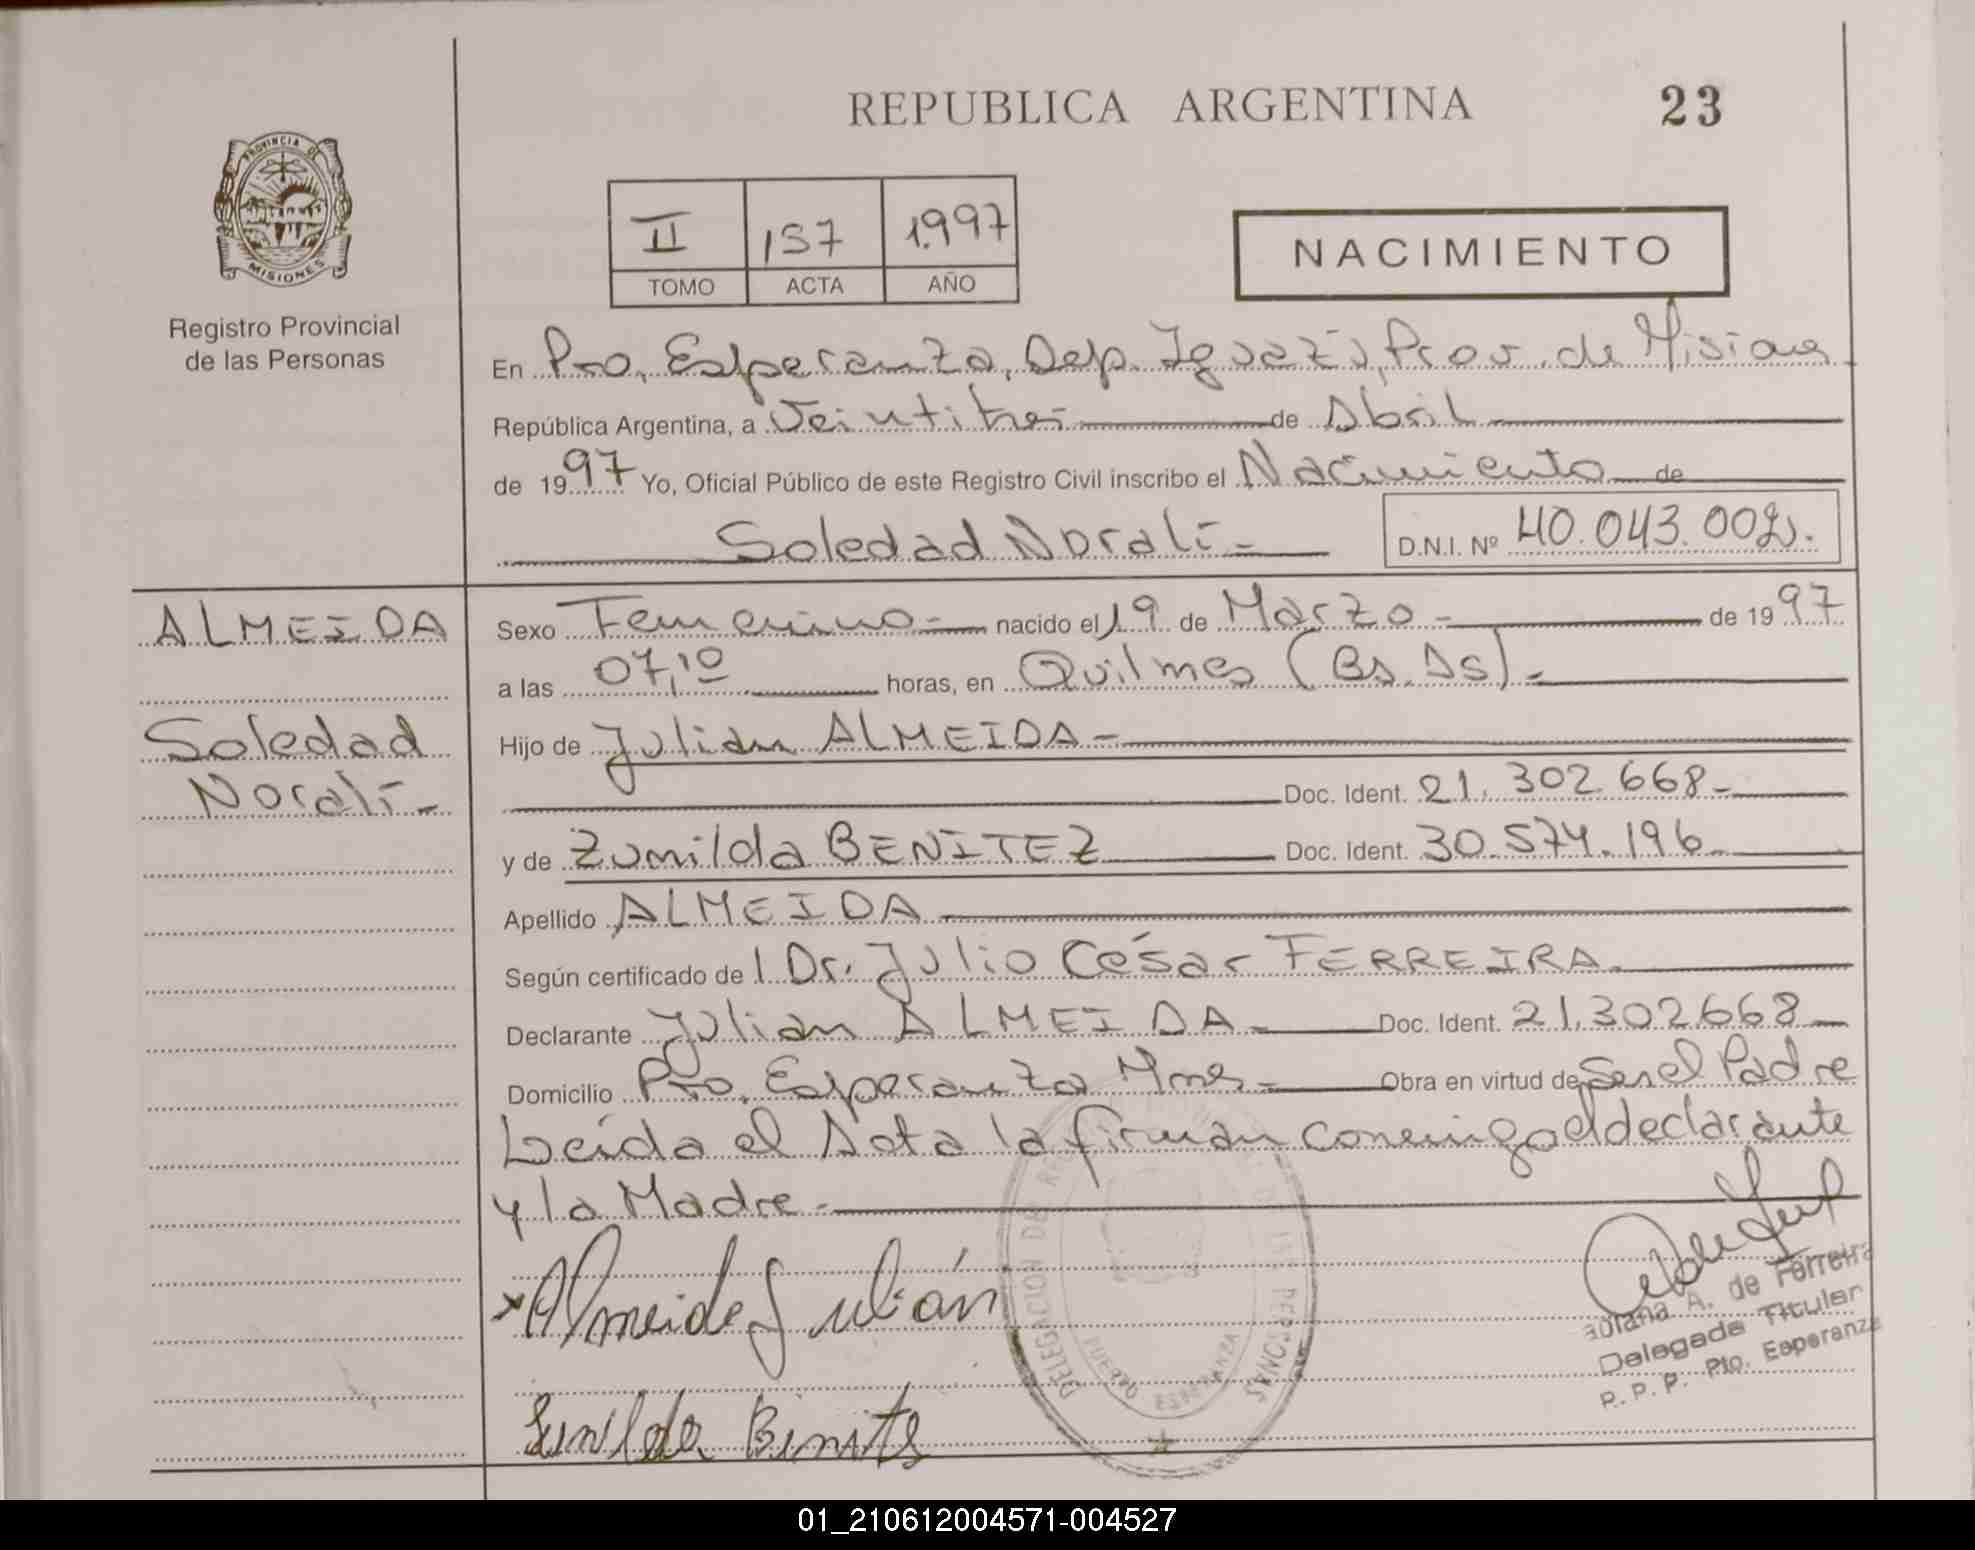 REPUBLICA ARGENTINA
23
PROVINCIA DE
MISIONES
Registro Provincial
de las Personas
II 157 1.997
TOMO ACTA AÑO
NACIMIENTO
En Pto. Esperanza, Dep. Iguazú, Prov. de Misiones
República Argentina, a Veintitres de Abril
de 1997 Yo, Oficial Público de este Registro Civil inscribo el Nacimiento de
Soledad Noralí - D.N.I. Nº 40.043.002.
ALMEIDA
Soledad
Noralí -
Sexo Femenino - nacido el 19 de Marzo - de 1997
a las 07,10 horas, en Quilmes (Bs. As). -
Hijo de Julian ALMEIDA -
Doc. Ident. 21.302.668 -
y de Zunilda BENITEZ Doc. Ident. 30.574.196 -
Apellido ALMEIDA
Según certificado de l Dr. Julio César FERREIRA.
Declarante Julian ALMEIDA - Doc. Ident. 21.302.668 -
Domicilio Pto. Esperanza Mnes - Obra en virtud de Ser el Padre
Leída el Acta la firman conmigo el declarante
y la Madre. -
Almeida Julián
Zunilda Binits
DELEGACION DEL REG DE LAS PERSONAS
PUERTO ESPERANZA
A. de Ferreira
Delegada Titular
R. P. P. Pto. Esperanza
01_210612004571-004527